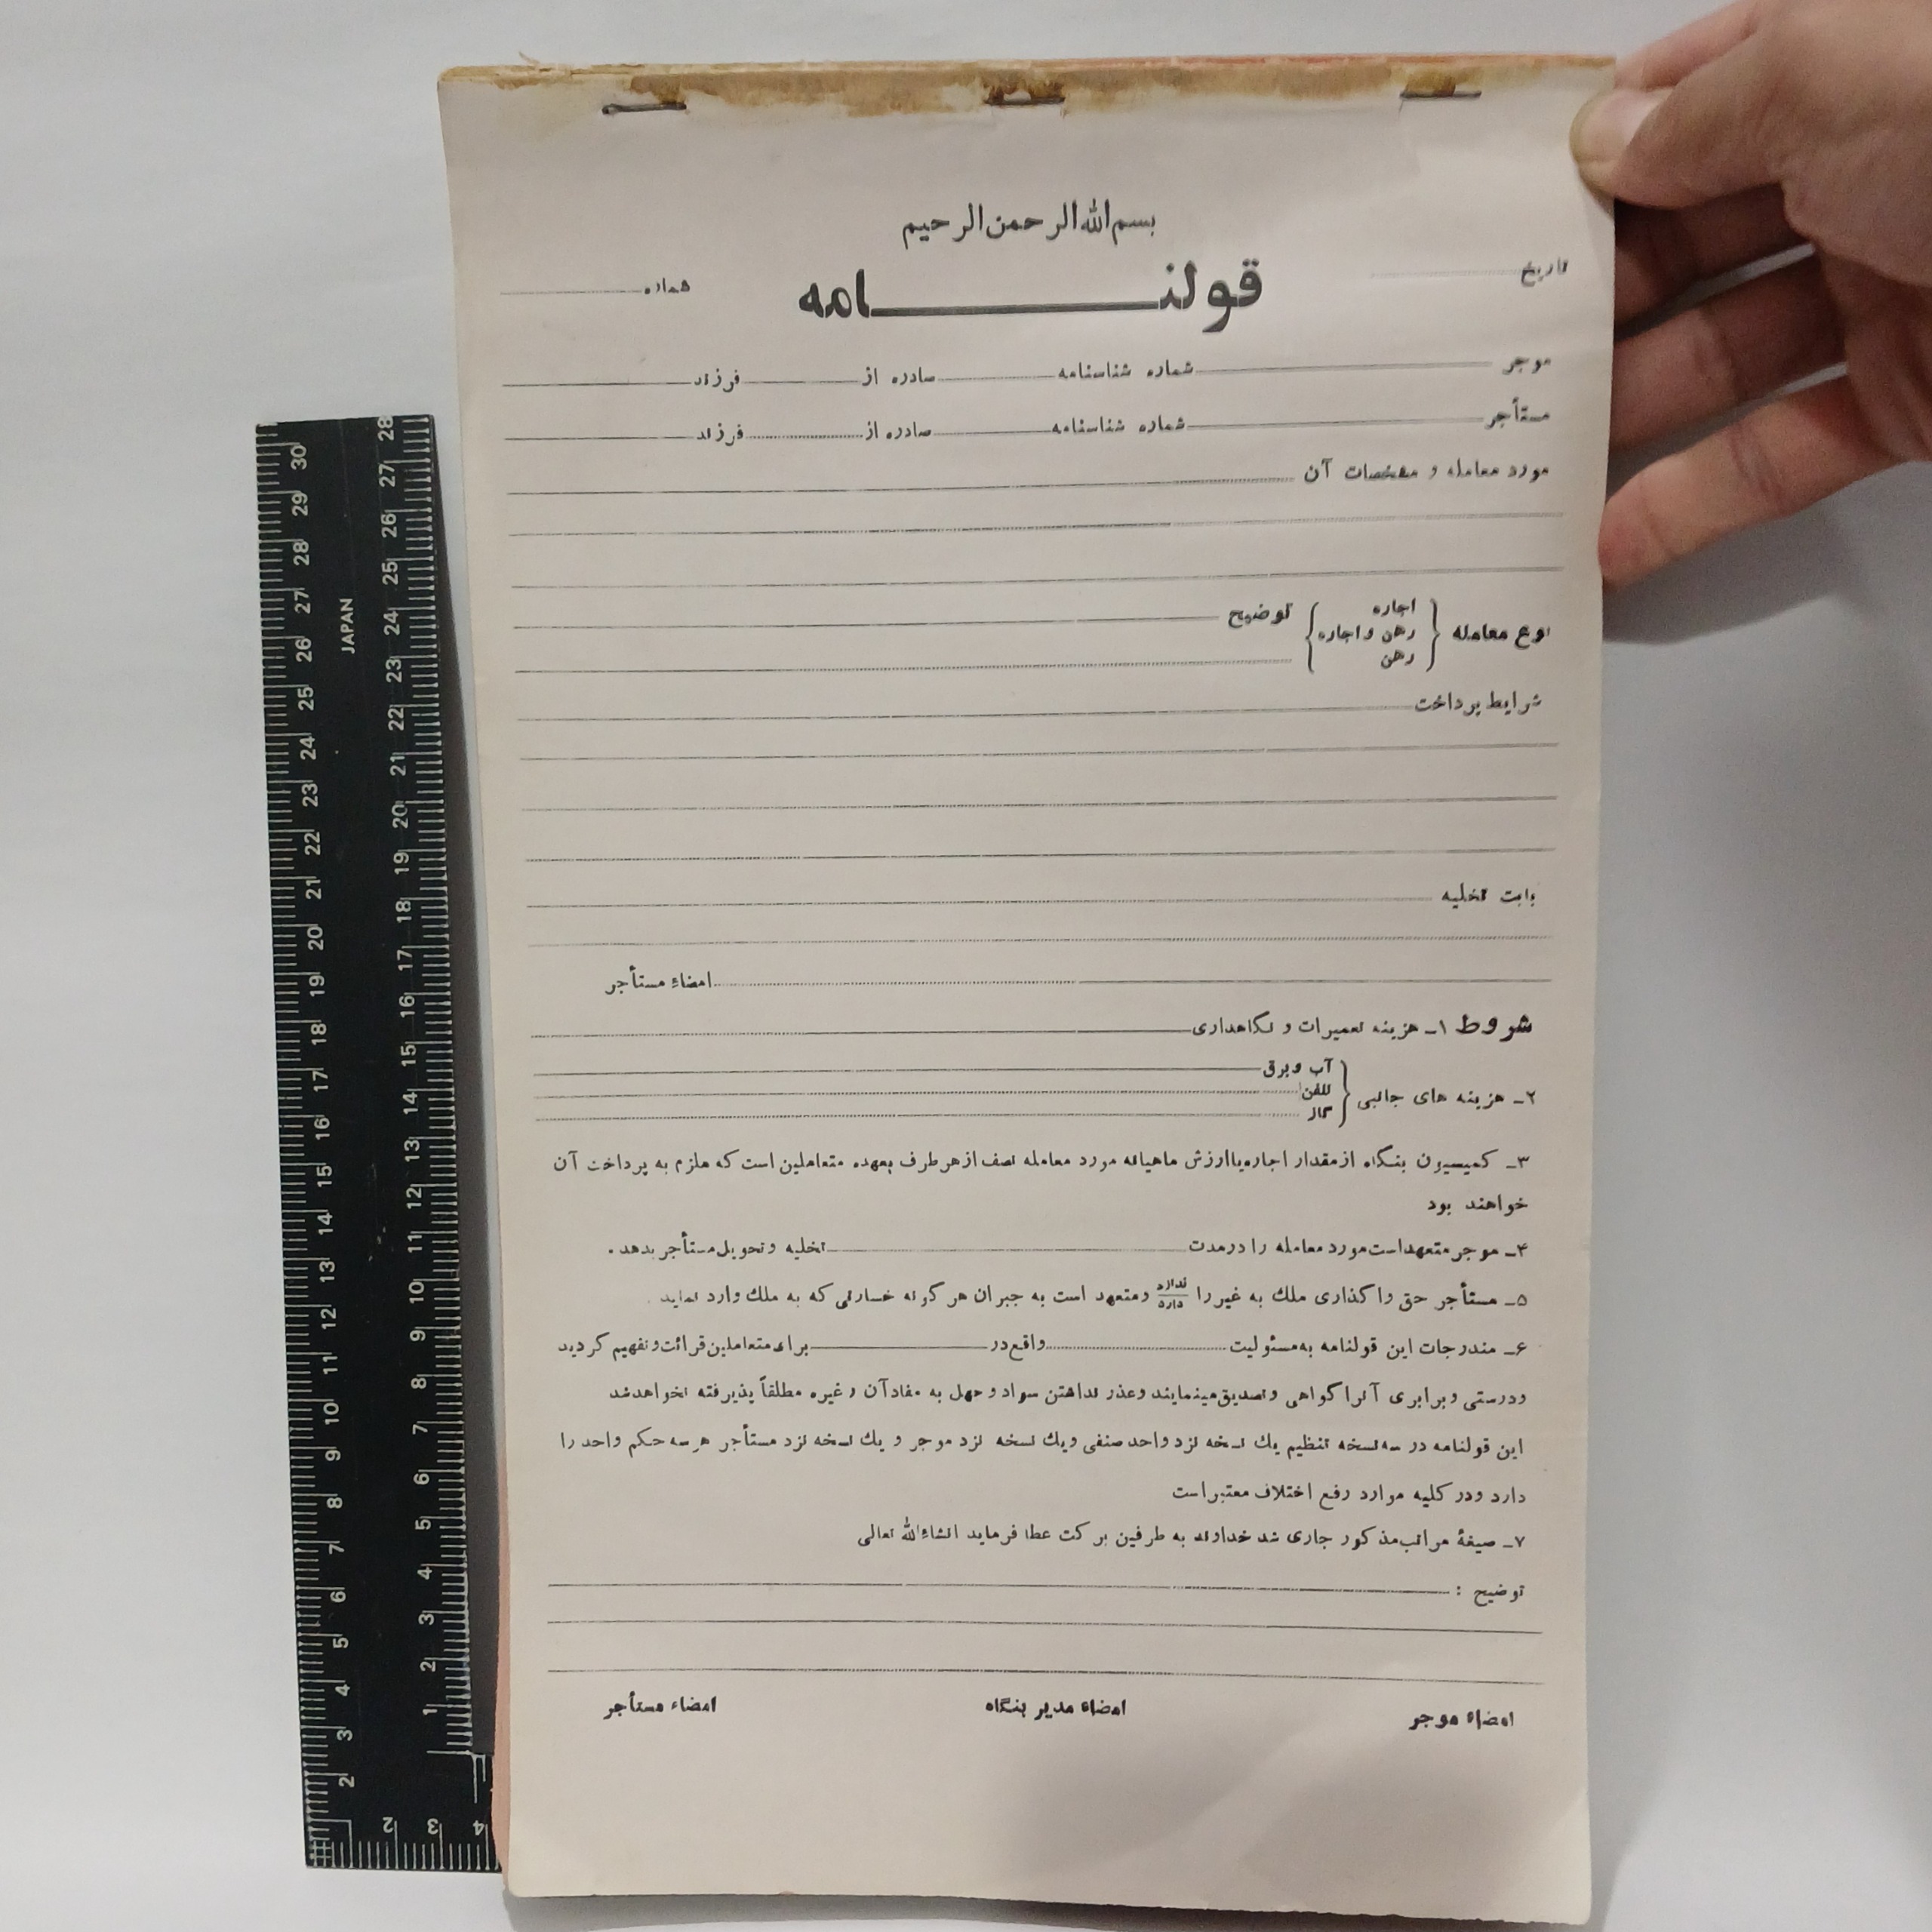 بسم الله الرحمن الرحیم
تاریخ
قولنامه
شماره
موجر شماره شناسنامه صادره از فرزند
مستأجر شماره شناسنامه صادره از فرزند
مورد معامله و مشخصات آن
نوع معامله { اجاره
رهن و اجاره
رهن } توضیح
شرایط پرداخت
بابت تخلیه
امضاء مستأجر
شروط ۱ـ هزینه تعمیرات و نگاهداری
۲ـ هزینه های جانبی { آب و برق
تلفن
گاز
۳ـ کمیسیون بنگاه از مقدار اجاره یا ارزش ماهیانه مورد معامله نصف از هر طرف بعهده متعاملین است که ملزم به پرداخت آن
خواهند بود
۴ـ موجر متعهد است مورد معامله را در مدت تخلیه و تحویل مستأجر بدهد.
۵ـ مستأجر حق واگذاری ملک به غیر را ندارد
دارد و متعهد است به جبران هر گونه خسارتی که به ملک وارد نماید.
۶ـ مندرجات این قولنامه به مسئولیت واقع در برای متعاملین قرائت و تفهیم گردید
و درستی و برابری آنرا گواهی و تصدیق مینمایند و عذر نداشتن سواد و جهل به مفاد آن و غیره مطلقاً پذیرفته نخواهد شد
این قولنامه در سه نسخه تنظیم یک نسخه نزد واحد صنفی و یک نسخه نزد موجر و یک نسخه نزد مستأجر هر سه حکم واحد را
دارد و در کلیه موارد رفع اختلاف معتبر است
۷ـ صیغهٔ مراتب مذکور جاری شد خداوند به طرفین برکت عطا فرماید انشاءالله تعالی
توضیح :
امضاء موجر امضاء مدیر بنگاه امضاء مستأجر
JAPAN
30 29 28 27 26 25 24 23 22 21 20 19 18 17 16 15 14 13 12 11 10 9 8 7 6 5 4 3 2
28 27 26 25 24 23 22 21 20 19 18 17 16 15 14 13 12 11 10 9 8 7 6 5 4 3 2 1
2 3 4